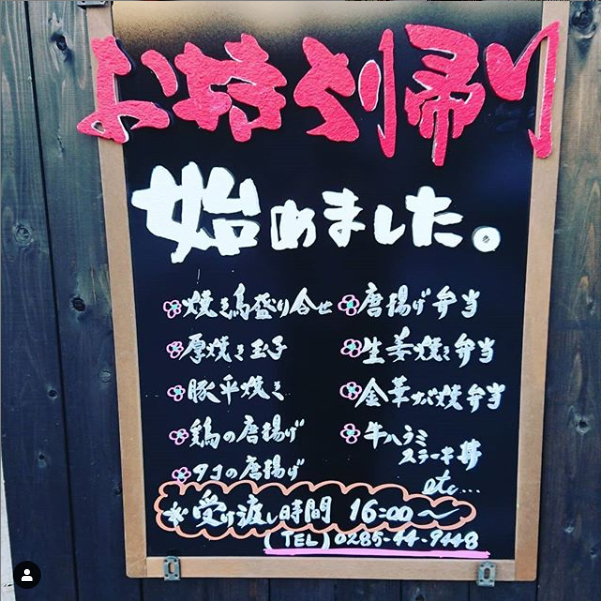 お持ち帰り
始めました。
焼き鳥盛り合せ
厚焼き玉子
豚平焼き
鶏の唐揚げ
タコの唐揚げ
唐揚げ弁当
生姜焼き弁当
金華サバ焼弁当
牛ハラミ
ステーキ丼
etc...
※受け渡し時間 16:00〜
(TEL) 0285-44-9448